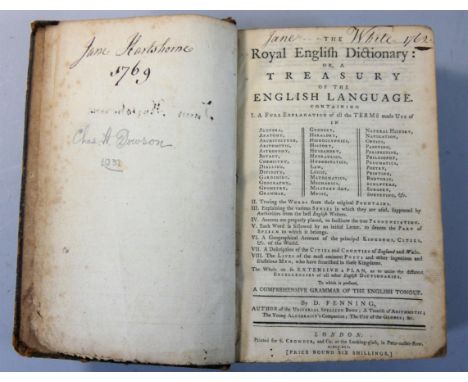 Jane Hartshorne
1769
Chas. H. Dowson
1931
Jane White 1762
THE
Royal English Dictionary:
OR, A
TREASURY
OF THE
ENGLISH LANGUAGE.
CONTAINING
I. A FULL EXPLANATION of all the TERMS made Use of
IN
ALGEBRA,
ANATOMY,
ARCHITECTURE,
ARITHMETIC,
ASTRONOMY,
BOTANY,
CHEMISTRY,
DIALLING,
DIVINITY,
GARDENING,
GEOGRAPHY,
GEOMETRY,
GRAMMAR,
GUNNERY,
HERALDRY,
HIEROGLYPHICS,
HISTORY,
HUSBANDRY,
HYDRAULICS,
HYDROSTATICS,
LAW,
LOGIC,
MATHEMATICS,
MECHANICS,
MILITARY ART,
MUSIC,
NATURAL HISTORY,
NAVIGATION,
OPTICS,
PAINTING,
PERSPECTIVE,
PHILOSOPHY,
PNEUMATICS,
POETRY,
PRINTING,
RHETORIC,
SCULPTURE,
SURGERY,
SURVEYING, &c.
II. Tracing the WORDS from their original FOUNTAINS.
III. Explaining the various SENSES in which they are used, supported by
Authorities from the best English Writers.
IV. Accents are properly placed, to facilitate the true PRONUNCIATION.
V. Each Word is followed by an initial Letter, to denote the PART of
SPEECH to which it belongs.
VI. A Geographical Account of the principal KINGDOMS, CITIES,
&c. of the World.
VII. A Description of the CITIES and COUNTIES of England and Wales.
VIII. The LIVES of the most eminent POETS and other ingenious and
illustrious MEN, who have flourished in these Kingdoms.
The Whole on so EXTENSIVE a PLAN, as to unite the different
EXCELLENCIES of all other English DICTIONARIES.
To which is prefixed,
A COMPREHENSIVE GRAMMAR OF THE ENGLISH TONGUE.
By D. FENNING,
AUTHOR of the UNIVERSAL SPELLING BOOK; A Treatise of ARITHMETIC;
The Young ALGEBRAIST's Companion; The USE of the GLOBES; &c.
LONDON:
Printed for S. CROWDER, and Co. at the Looking-glass, in Pater-noster-Row.
[PRICE BOUND SIX SHILLINGS.]